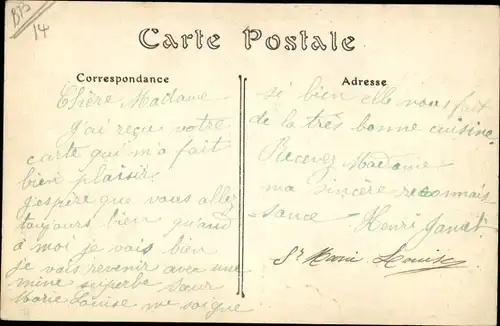 BPS
14
Carte Postale
Correspondance
Adresse
Chère Madame
J'ai reçu votre
carte qui m'a fait
bien plaisir.
J'espère que vous allez
toujours bien quand
à moi je vais bien
je vais revenir avec une
mine superbe sœur
Marie Louise me soigne
si bien elle vous fait
de la très bonne cuisine.
Recevez Madame
ma sincère reconnais-
sance
Henri
Sr Marie Louise